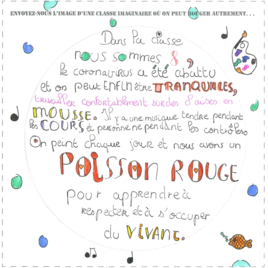 ENVOYEZ-NOUS L'IMAGE D'UNE CLASSE IMAGINAIRE OÙ ON PEUT BOUGER AUTREMENT...
Dans la classe
nous sommes 8,
le coronavirus a été abattu
et on peut ENFIN être TRANQUILLES,
travailler confortablement sur des chaises en
MOUSSE. Il y a une musique tendre pendant
les COURS et personne ne pendant les contrôles
On peint chaque jour et nous avons un
POISSON ROUGE
pour apprendre à
respecter et à s'occuper
du VIVANT.